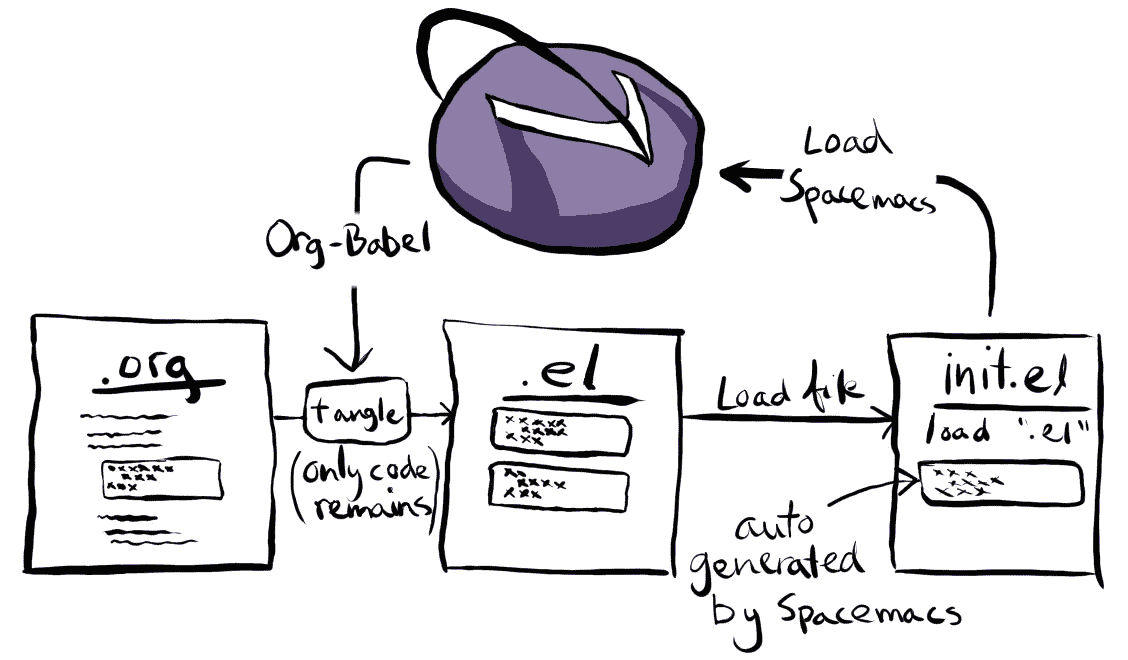 Load
Spacemacs
Org-Babel
.org
tangle
(only code
remains)
.el
Load file
init.el
load ".el"
auto
generated
by Spacemacs